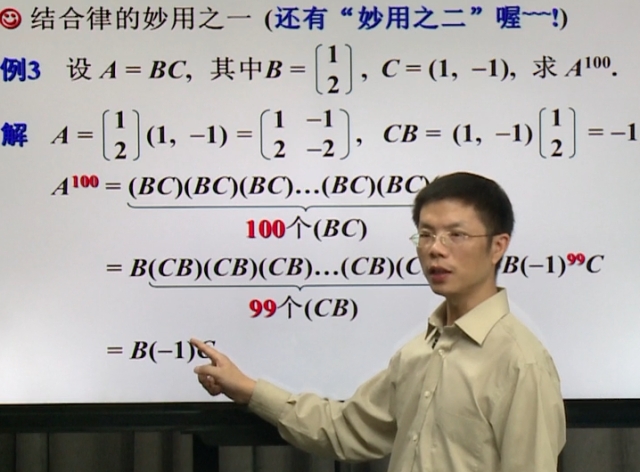 结合律的妙用之一 (还有“妙用之二”喔~~!)
例3 设 A = BC, 其中B = (1 2), C = (1, −1), 求 A¹⁰⁰.
解 A = (1 2)(1, −1) = (1 −1 2 −2), CB = (1, −1)(1 2) = −1
A¹⁰⁰ = (BC)(BC)(BC)…(BC)(BC
100个(BC)
= B(CB)(CB)(CB)…(CB)(C B(−1)⁹⁹C
99个(CB)
= B(−1)C